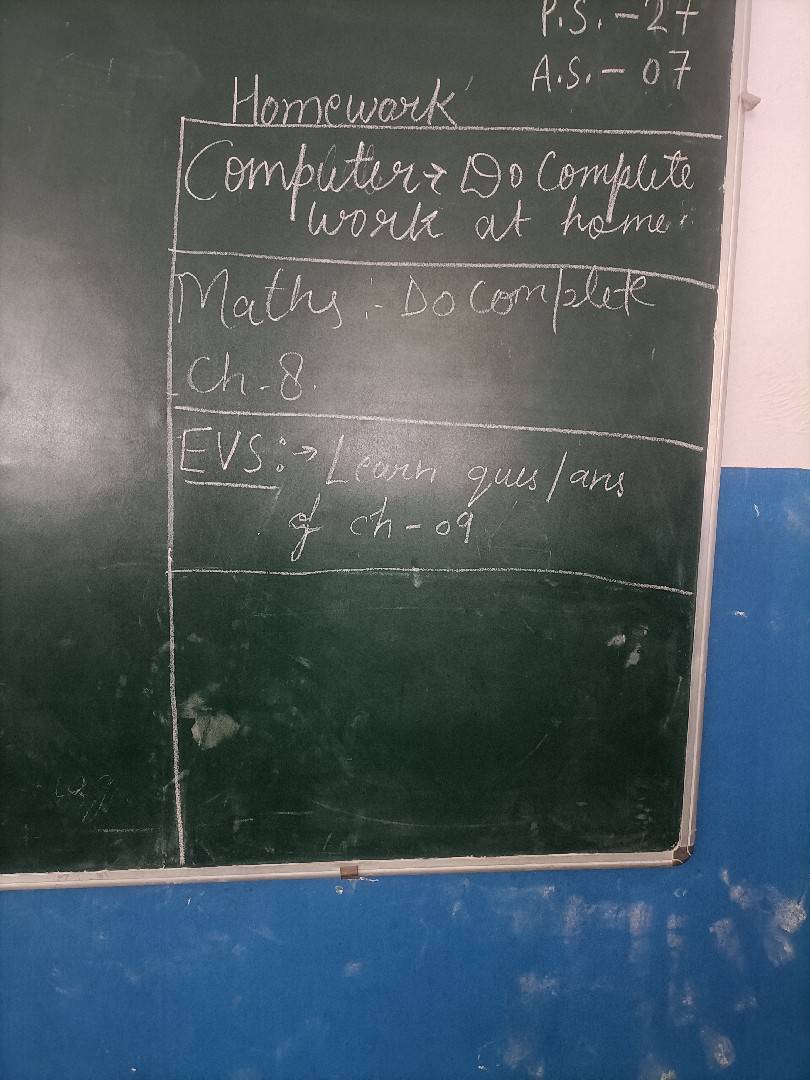 P.S. - 27
A.S. - 07
Homework
Computer → Do Complete
work at home.
Maths :- Do Complete
Ch - 8.
EVS :→ Learn ques/ans
of ch - 09